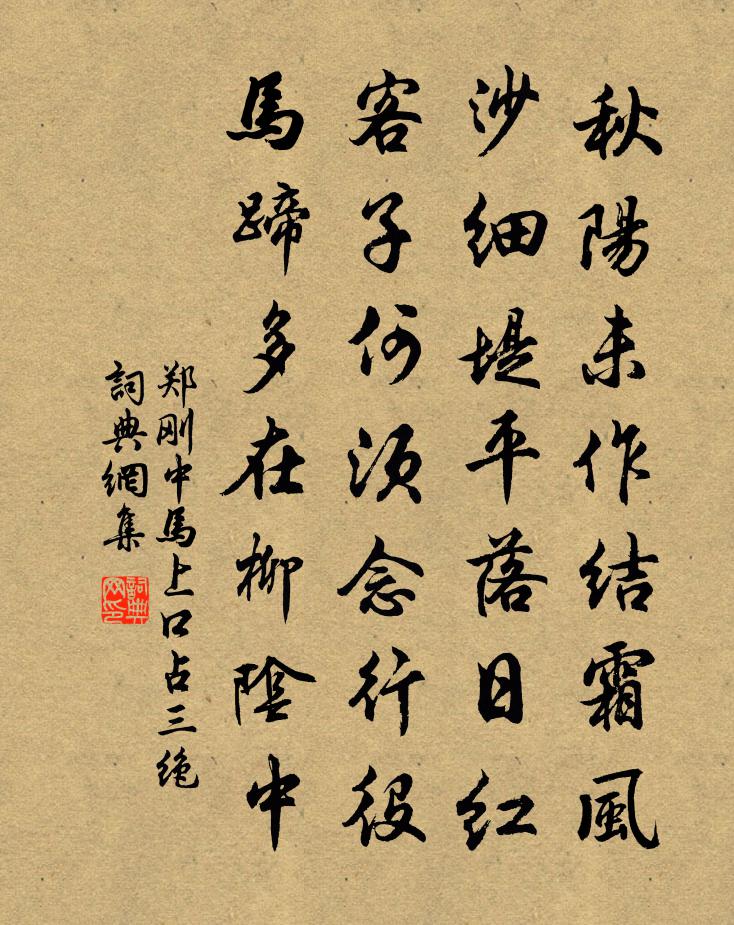 秋陽未作結霜風
沙細堤平落日紅
客子何須念行役
馬蹄多在柳陰中
郑刚中馬上口占三絶
詞典網集
詞典網印